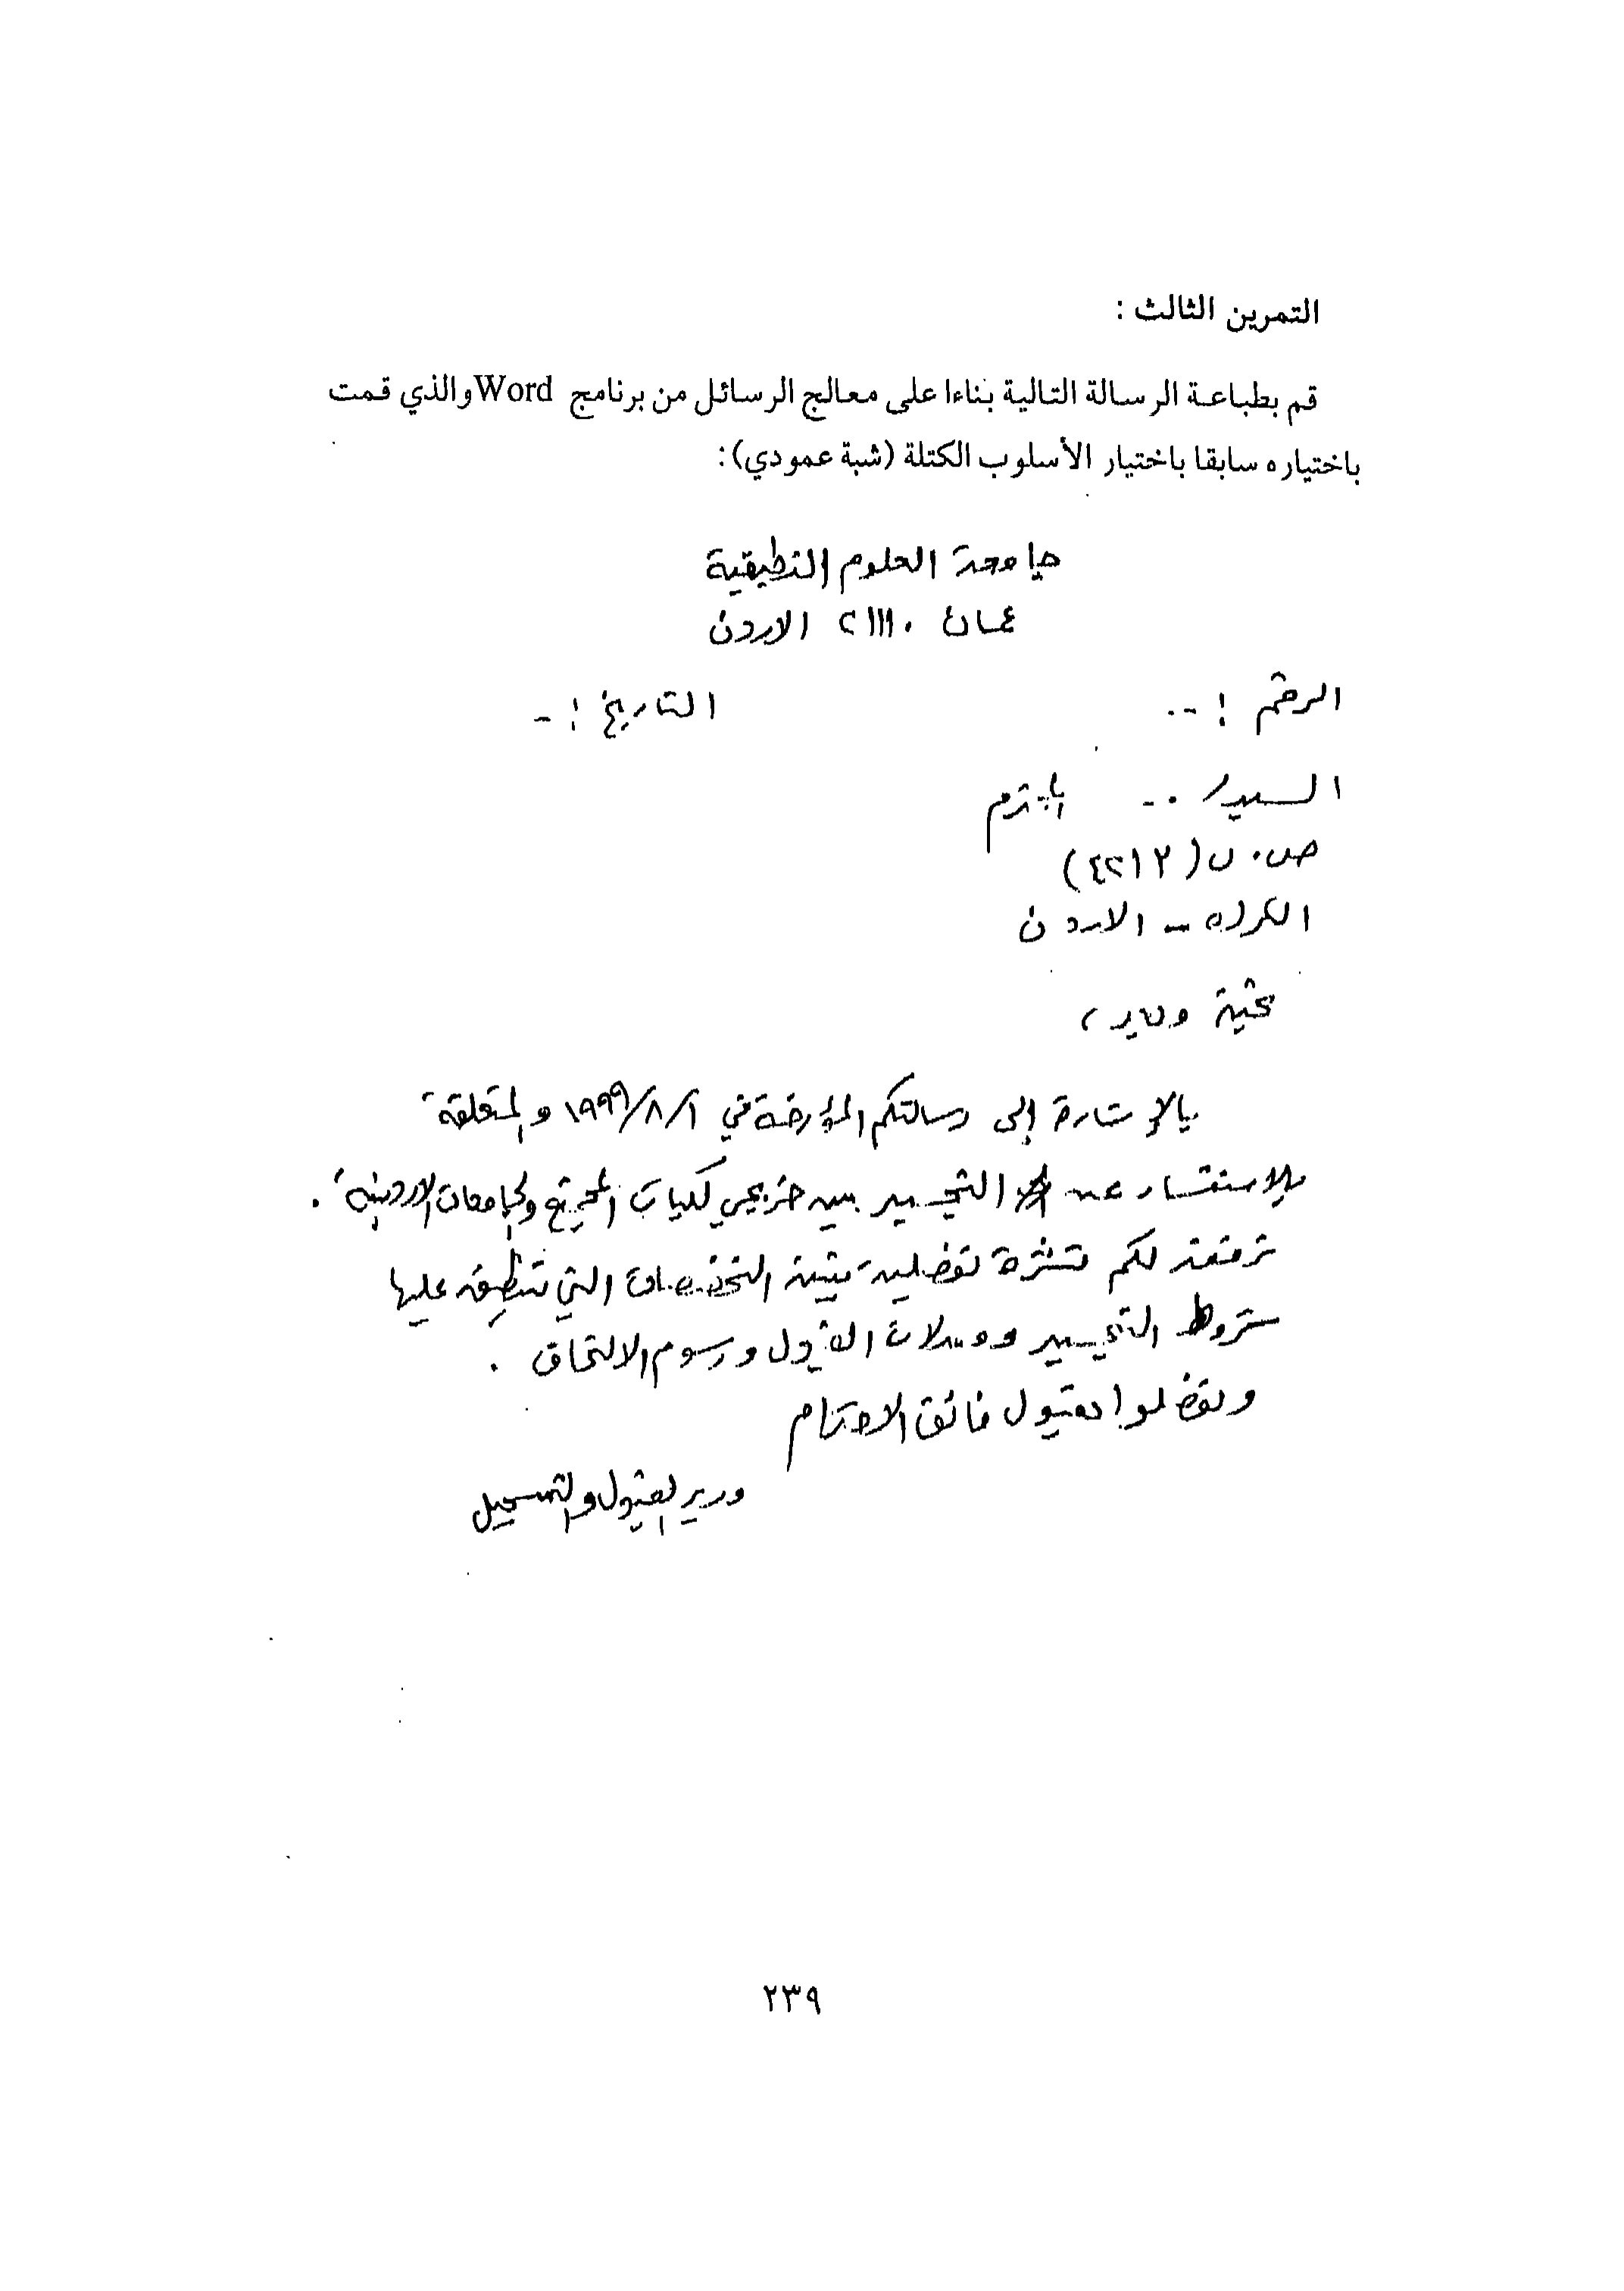 التمرين الثالث :
قم بطباعة الرسالة التالية بناءا على معالج الرسائل من برنامج Word والذي قمت
باختياره سابقا باختيار الأسلوب الكتلة (شبة عمودي):
جامعة العلوم التطبيقية
عمان ٢١١١٠ الاردن
الرقم :-
التاريخ :-
السيد / .. المحترم
ص.ب (٤٢١٢)
الكرك - الاردن
تحية وبعد ،
بالإشارة إلى رسالتكم المؤرخة في ١٩٩٩/٨/١ والمتعلقة
بالاستفسار عن التجسير بين خريجي كليات المجتمع والجامعات الاردنية .
نرفق لكم نشرة تفصيلية مبينة التخصصات التي تنطبق عليها
شروط التجسير ومعدلات القبول ورسوم الالتحاق .
وتفضلوا بقبول فائق الاحترام
مدير القبول والتسجيل
٢٣٩